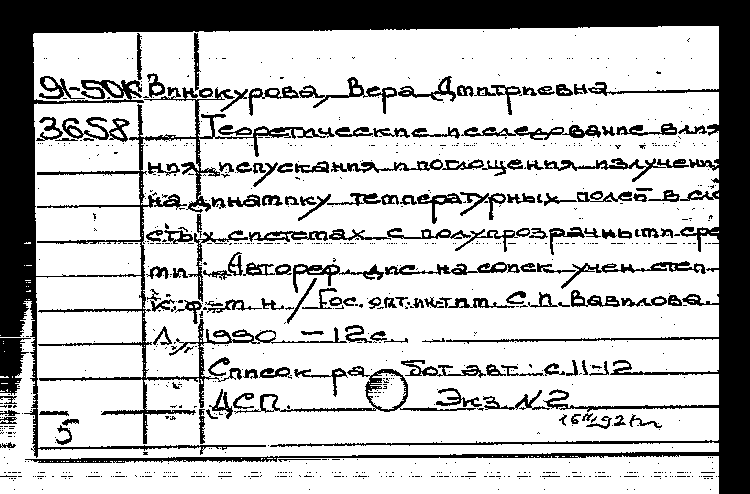 91-50к Винокурова, Вера Дмитриевна
3658 Теоретические исследование влия
ния испускания и поглощения излучения
на динамику температурных полей в сло
стых системах с полупрозрачными сре
ми : Автореф. дис. на соиск. учен. степ.
к. ф.-м. н. / Гос. опт. ин-т им. С. И. Вавилова.
Л., 1990 - 12 с.
Список ра бот авт.: с. 11-12
ДСП. Экз N2
5